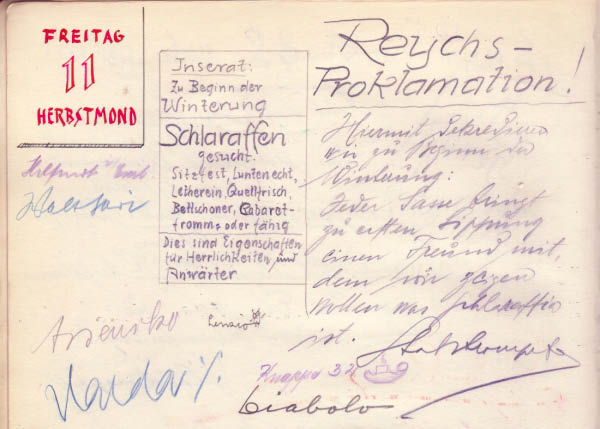 FREITAG
11
HERBSTMOND
Inserat:
Zu Beginn der
Winterung
Schlaraffen
gesucht.
Sitzfest, Luntenecht,
Letherein, Quellfrisch,
Bettschoner, Cabaret-
fromme oder fähig
Dies sind Eigenschaften
für Herrlichkeiten und
Anwärter
Reychs-
Proklamation!
Hiermit dekredieren
wir zu Beginn der
Winterung:
Jeder Sasse bringt
zu ersten Sippung
einen Freund mit,
dem wir zeigen
wollen was Schlaraffia
ist.
Knappe 32
Diabolo